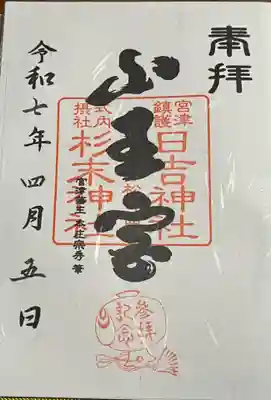 奉拝
宮津
鎮護
日吉神社
式内
摂社
杉末神社
山王宮
宮津藩主 本荘宗秀 筆
令和七年 四月 五日
参拝
記念